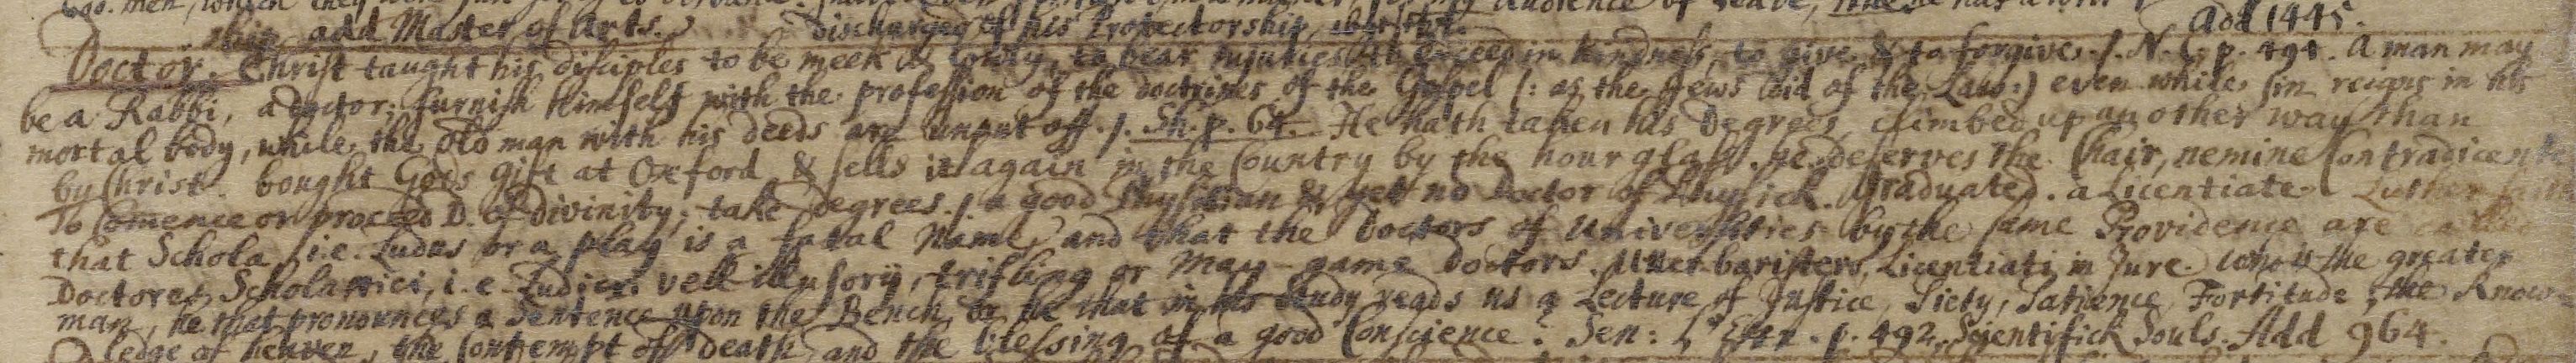 add Master of Arts. discharged of his Protectorship, Add 1445.
Doctor. Christ taught his disciples to be meek & lowly, to bear injuries, to exceed in kindness, to give & to forgive. /. N. C. p. 494. A man may
be a Rabbi, a doctor; furnish himself with the profession of the doctrines of the Gospel (: as the Jews did of the Law :) even while sin reigns in his
mortal body, while the old man with his deeds are unput off. /. Sh. p. 64. He hath taken his Degrees, climbed up another way than
by Christ. bought Gods gift at Oxford & sells it again in the Country by the hour glass. he deserves the Chair, nemine Contradicente
To Comence or proceed D. of divinity, take degrees. /. a good Physitian & yet no Doctor of Physick. Graduated. a Licentiate. Luther saith
that Schola, i.e. Ludus or a play is a fatal Name, and that the Doctors of Universities by the same Providence are called
Doctores Scholastici, i.e. Ludicri vel illusorij, trifling or May-game Doctors. Utter-baristers, Licentiati in Jure. who is the greater
man, he that pronounces a Sentence upon the Bench, or he that in his study reads us a Lecture of Justice, Piety, Patience, Fortitude, the Know-
ledge of heaven, the Contempt of death and the blessing of a good Conscience? Sen: p. 492. Scientifick Souls. Add 964.